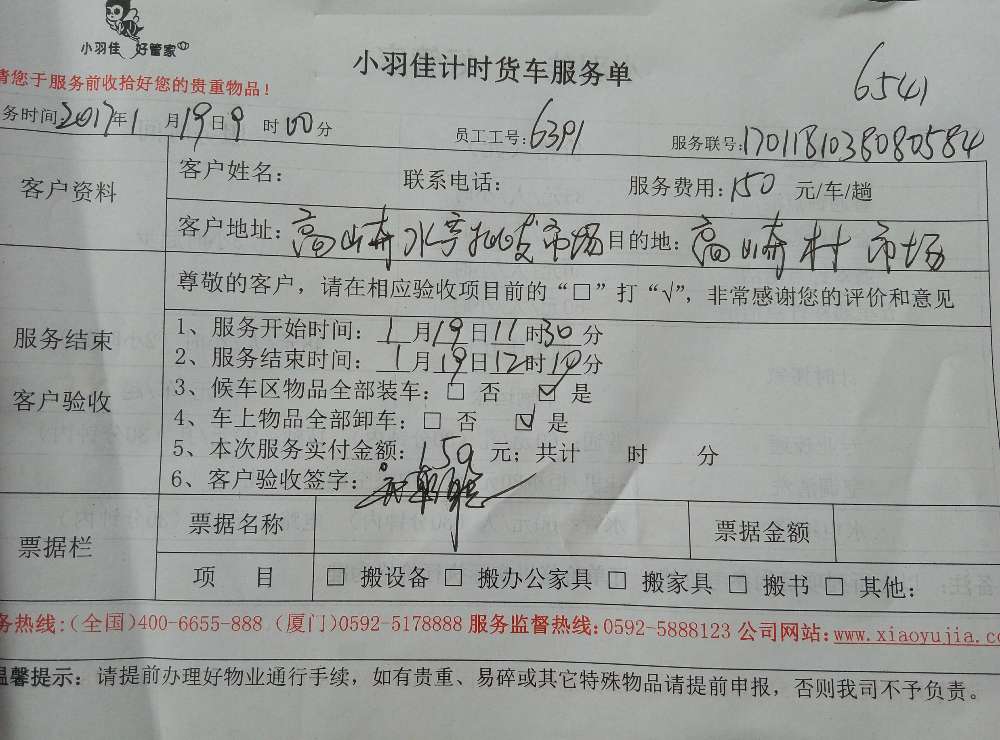 小羽佳 好管家
小羽佳计时货车服务单
6541
请您于服务前收拾好您的贵重物品!
务时间:2017年1月19日9时00分 员工工号:6391 服务联号:1701181038080584
客户资料
客户姓名: 联系电话: 服务费用:150 元/车/趟
客户地址:高崎水产批发市场 目的地:高崎村市场
尊敬的客户,请在相应验收项目前的“□”打“√”,非常感谢您的评价和意见
服务结束
客户验收
1、服务开始时间:1月19日11时30分
2、服务结束时间:1月19日12时10分
3、候车区物品全部装车:□ 否 ☑ 是
4、车上物品全部卸车:□ 否 ☑ 是
5、本次服务实付金额:150 元;共计 时 分
6、客户验收签字:
票据栏
票据名称 票据金额
项 目 □ 搬设备 □ 搬办公家具 □ 搬家具 □ 搬书 □ 其他:
务热线:(全国)400-6655-888(厦门)0592-5178888 服务监督热线:0592-5888123 公司网站:www.xiaoyujia.c
温馨提示:请提前办理好物业通行手续,如有贵重、易碎或其它特殊物品请提前申报,否则我司不予负责。